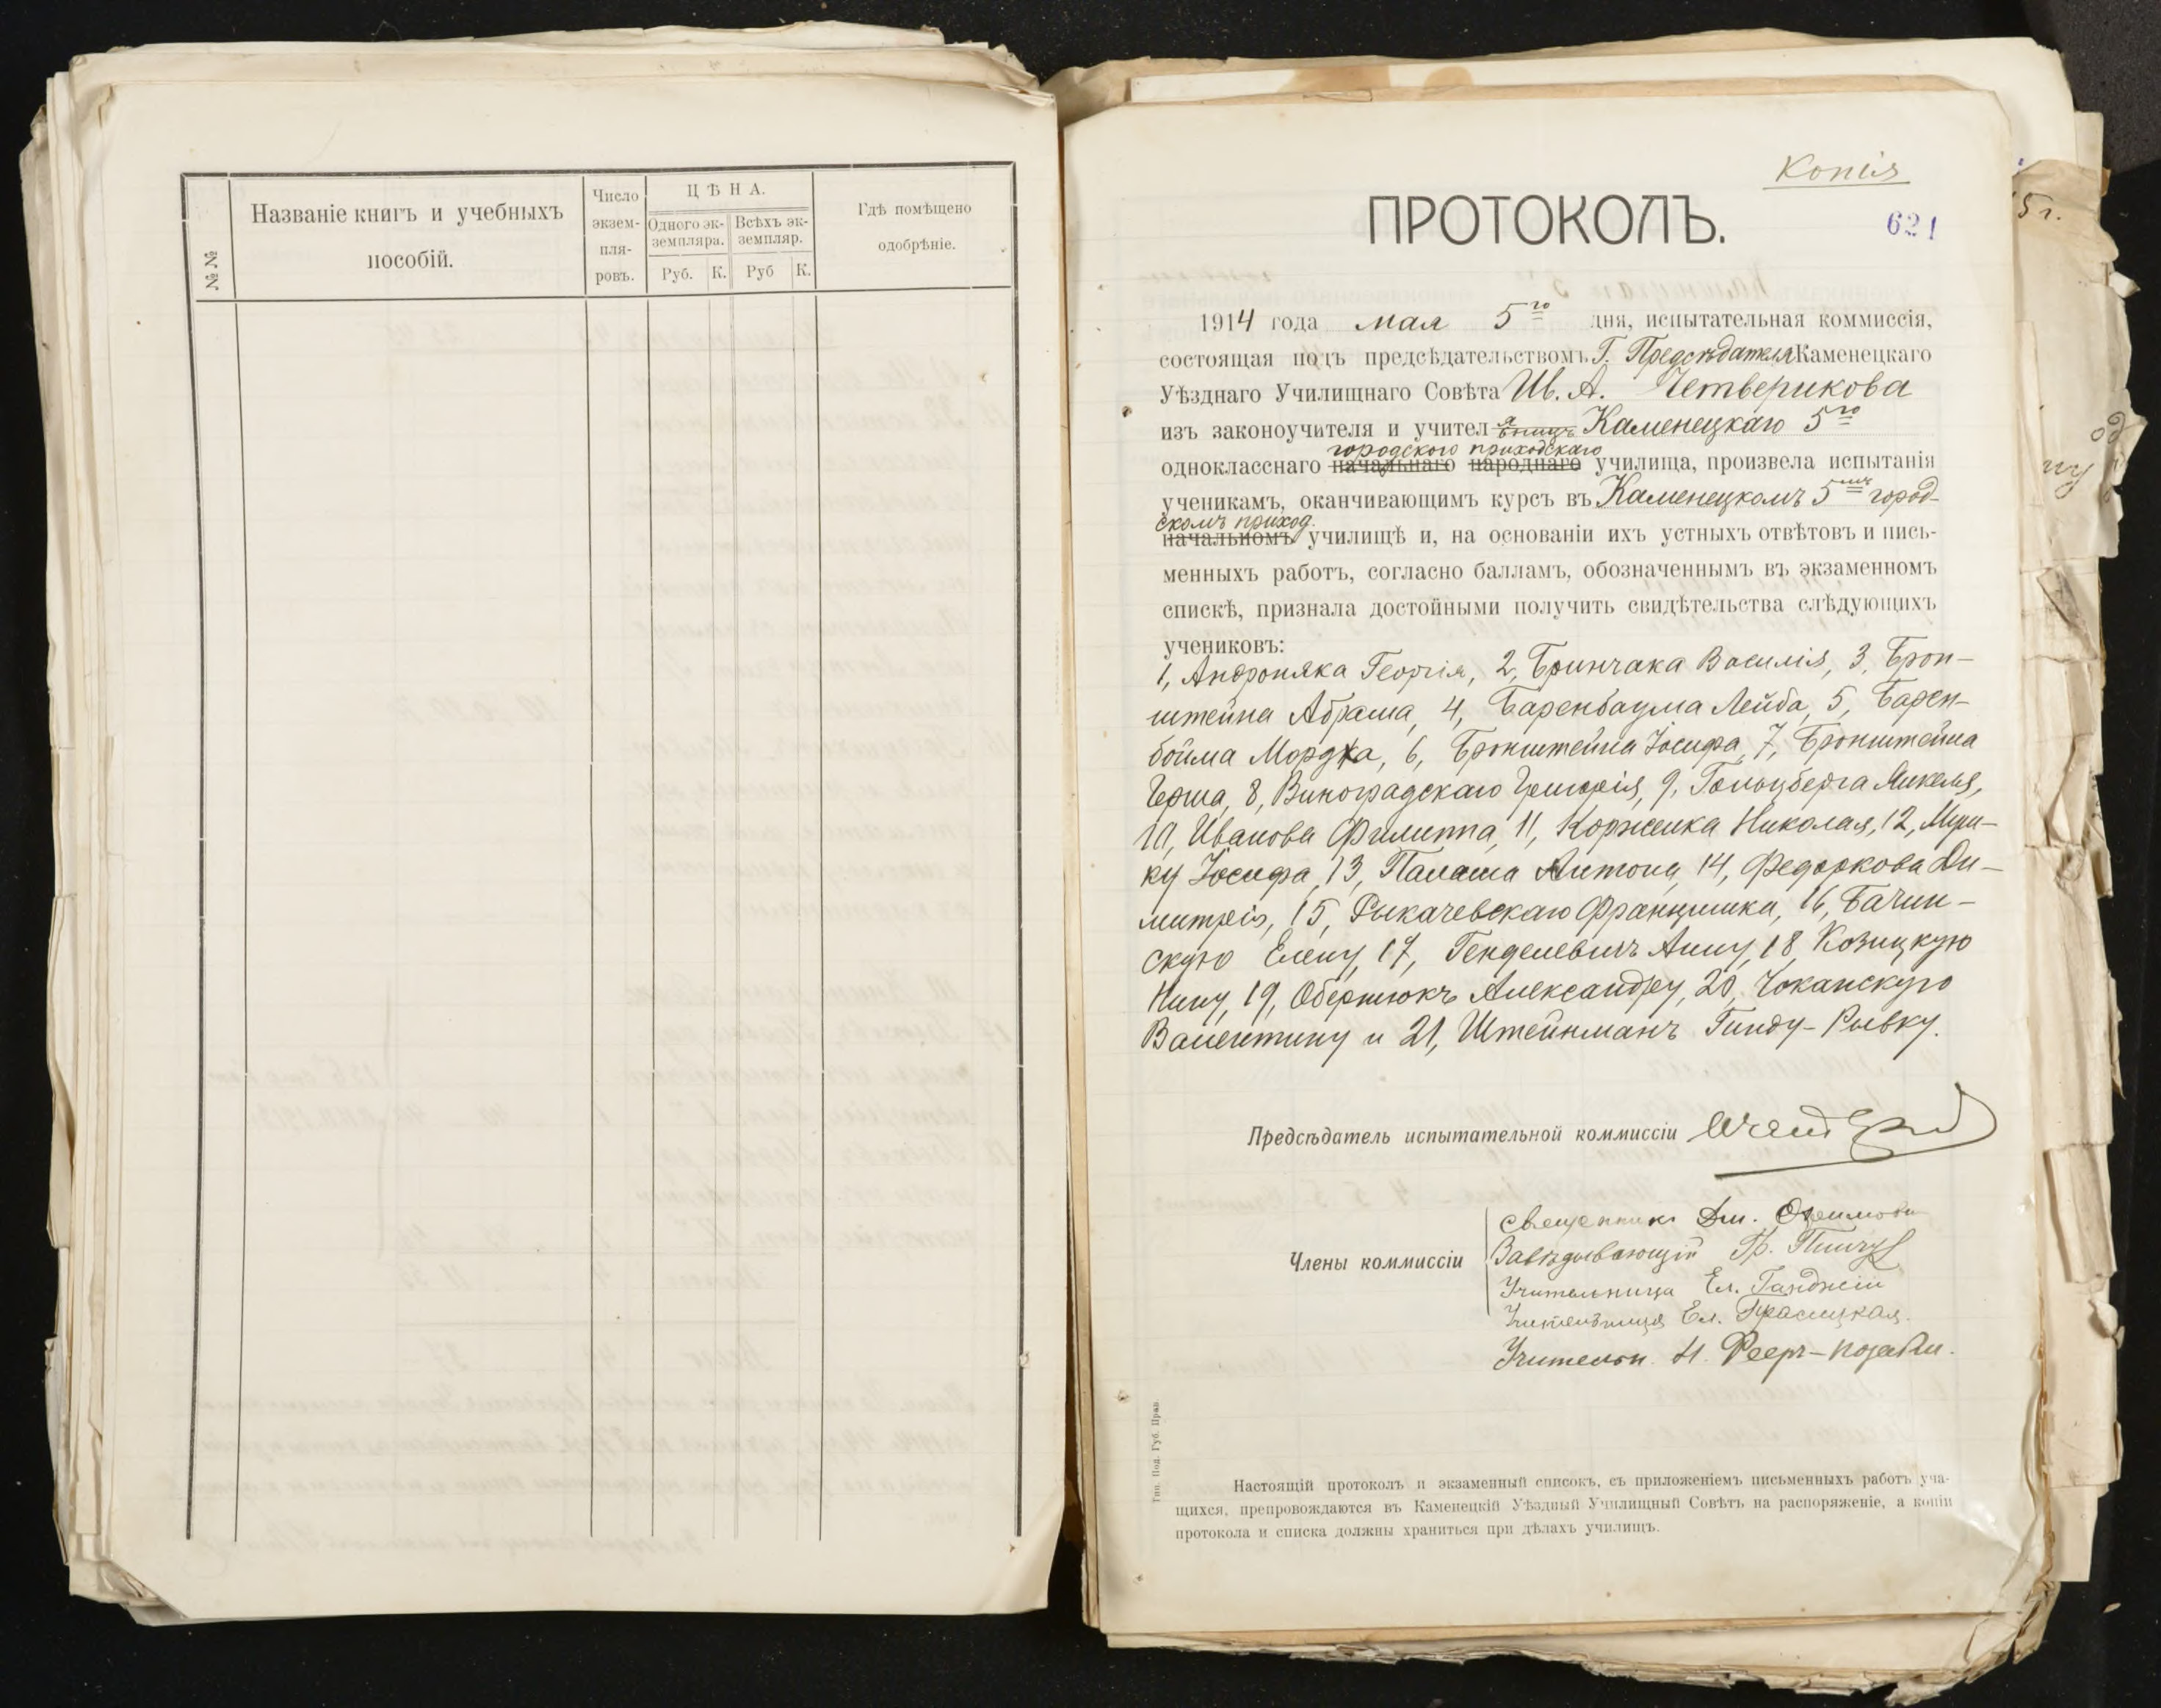 № №
Названіе книгъ и учебныхъ
пособій.
Число
экзем-
пля-
ровъ.
ЦѢНА.
Одного эк-
земпляра.
Всѣхъ эк-
земпляр.
Руб. К. Руб К.
Гдѣ помѣщено
одобрѣніе.
Копія
ПРОТОКОЛЪ.
621
1914 года мая 5го дня, испытательная коммиссія,
состоящая подъ предсѣдательствомъ Г. Предсѣдателя Каменецкаго
Уѣзднаго Училищнаго Совѣта Ив. А. Четверикова
изъ законоучителя и учител Каменецкаго 5го
городского приходскаго
однокласснаго начальнаго народнаго училища, произвела испытанія
ученикамъ, оканчивающимъ курсъ въ Каменецкомъ 5мъ город-
скомъ приход.
начальномъ училищѣ и, на основаніи ихъ устныхъ отвѣтовъ и пись-
менныхъ работъ, согласно балламъ, обозначеннымъ въ экзаменномъ
спискѣ, признала достойными получить свидѣтельства слѣдующихъ
учениковъ:
1, Андроняка Георгія, 2, Бринчака Василія, 3, Брон-
штейна Абрама, 4, Баренбаума Лейба, 5, Барен-
бойма Мордка, 6, Бронштейна Іосифа, 7, Бронштейна
Герша, 8, Виноградскаго Григорія, 9, Гольцберга Янкеля,
10, Иванова Филиппа, 11, Корженка Николая, 12, Мри-
ку Іосифа, 13, Палаша Антона, 14, Федоркова Ди-
митрія, 15, Рыкачевскаго Францишка, 16, Бачин-
скую Елену, 17, Генделевичъ Анну, 18, Козицкую
Нину, 19, Обертюкъ Александру, 20, Чоканскую
Валентину и 21, Штейнманъ Гинду-Рывку.
Предсѣдатель испытательной коммиссіи
Члены коммиссіи
Священникъ Дм.
Завѣдывающій Гр.
Учительница Ел.
Учительница Ел.
Учительн. Н.
Тип. Под. Губ. Прав.
Настоящій протоколъ и экзаменный списокъ, съ приложеніемъ письменныхъ работъ уча-
щихся, препровождаются въ Каменецкій Уѣздный Училищный Совѣтъ на распоряженіе, а копіи
протокола и списка должны храниться при дѣлахъ училищъ.
5 г.